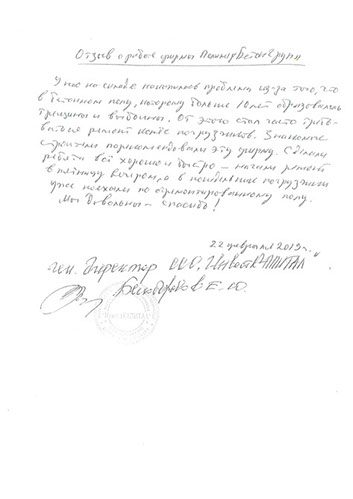 Отзыв о работе фирмы ПолимерБетонГрупп
У нас на складе накопились проблемы из-за того, что
в бетонном полу, которому больше 10 лет образовались
трещины и выбоины. От этого стал часто требо-
ваться ремонт наших погрузчиков. Знакомые
строители порекомендовали эту фирму. Сделали
ребята всё хорошо и быстро – начали ремонт
в пятницу вечером, а в понедельник погрузчики
уже поехали по отремонтированному полу.
Мы довольны – спасибо!
22 февраля 2019 г.
ген. директор ООО
Е. Ю.